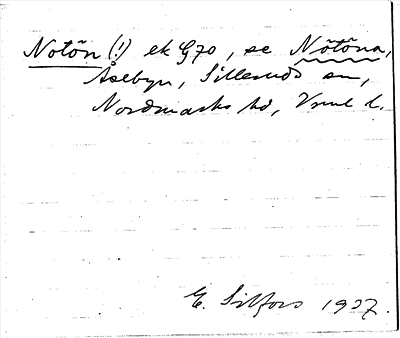 Notön (!) ek G70, se Nötöna,
Åsebyn, Sillerud sn,
Nordmarks hd, Vrml l.
E. Silfors 1937.